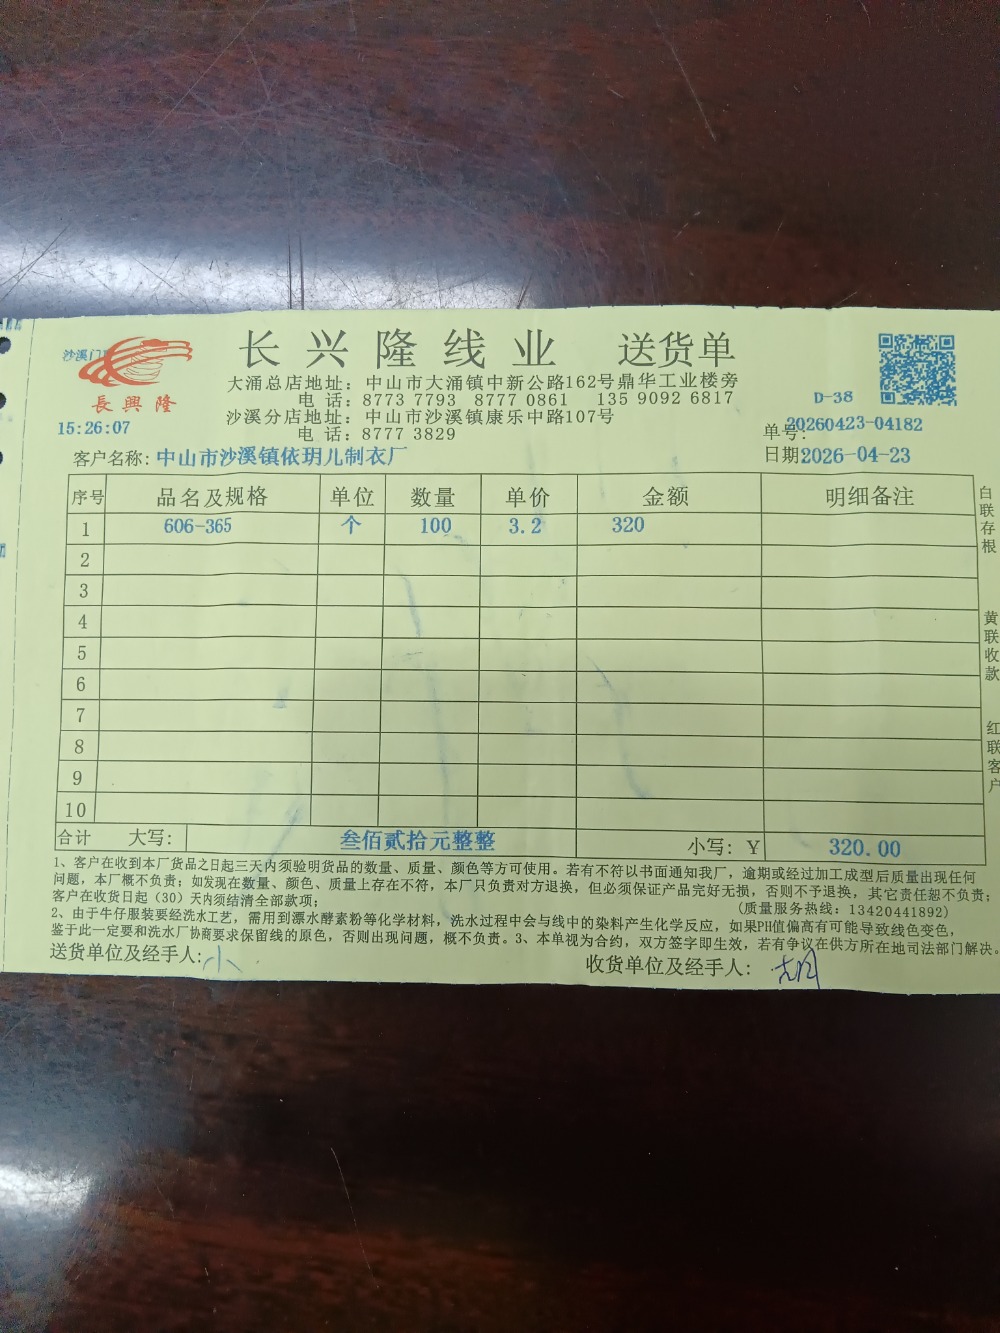 长兴隆线业 送货单
沙溪门
長興隆
大涌总店地址：中山市大涌镇中新公路162号鼎华工业楼旁
电 话：8773 7793 8777 0861 135 9092 6817
沙溪分店地址：中山市沙溪镇康乐中路107号
电 话：8777 3829
D-38
15:26:07
单号:20260423-04182
客户名称:中山市沙溪镇依玥儿制衣厂
日期2026-04-23
序号 品名及规格 单位 数量 单价 金额 明细备注
1 606-365 个 100 3.2 320
2
3
4
5
6
7
8
9
10
合计 大写: 叁佰贰拾元整整 小写: Y 320.00
1、客户在收到本厂货品之日起三天内须验明货品的数量、质量、颜色等方可使用。若有不符以书面通知我厂，逾期或经过加工成型后质量出现任何
问题，本厂概不负责；如发现在数量、颜色、质量上存在不符，本厂只负责对方退换，但必须保证产品完好无损，否则不予退换，其它责任恕不负责；
客户在收货日起（30）天内须结清全部款项；
(质量服务热线：13420441892)
2、由于牛仔服装要经洗水工艺，需用到漂水酵素粉等化学材料，洗水过程中会与线中的染料产生化学反应，如果PH值偏高有可能导致线色变色，
鉴于此一定要和洗水厂协商要求保留线的原色，否则出现问题，概不负责。3、本单视为合约，双方签字即生效，若有争议在供方所在地司法部门解决。
送货单位及经手人:小
收货单位及经手人：
白联存根
黄联收款
红联客户